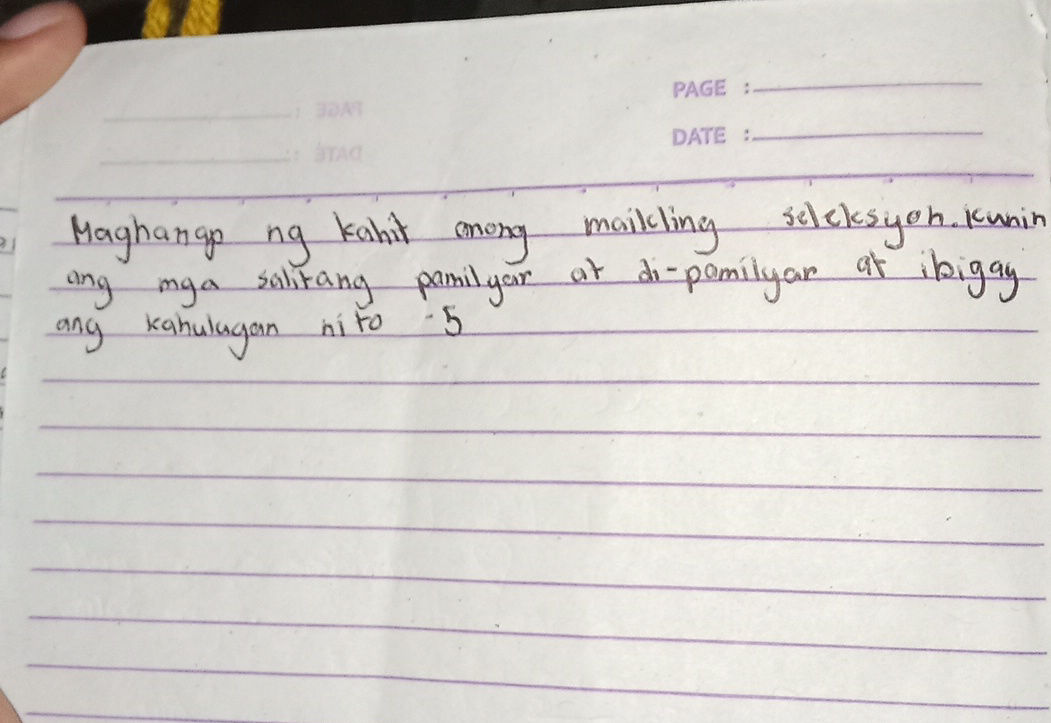 PAGE :
DATE :
Maghango ng kahit anong maikling seleksyon. Kunin
ang mga salitang pamilyar at di-pamilyar at ibigay
ang kahulugan nito - 5